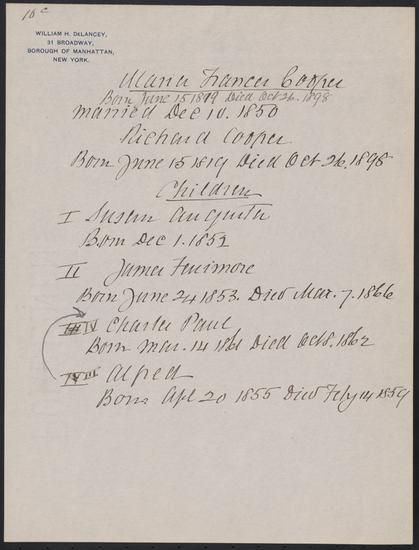 10c
WILLIAM H. DeLANCEY,
31 BROADWAY,
BOROUGH OF MANHATTAN,
NEW YORK.
Maria Frances Cooper
Born June 15 1819 Died Oct 26. 1898
Married Dec 10. 1850
Richard Cooper
Born June 15 1819 Died Oct 26. 1898
Children
I Susan Augusta
Born Dec 1. 1851
II James Fenimore
Born June 24 1853. Died Mar. 7. 1866
III IV Charles Paul
Born Mar. 14 1861 Died Oct 8. 1862
IV III Alfred
Born Apl 20 1855 Died Feby 14 1859